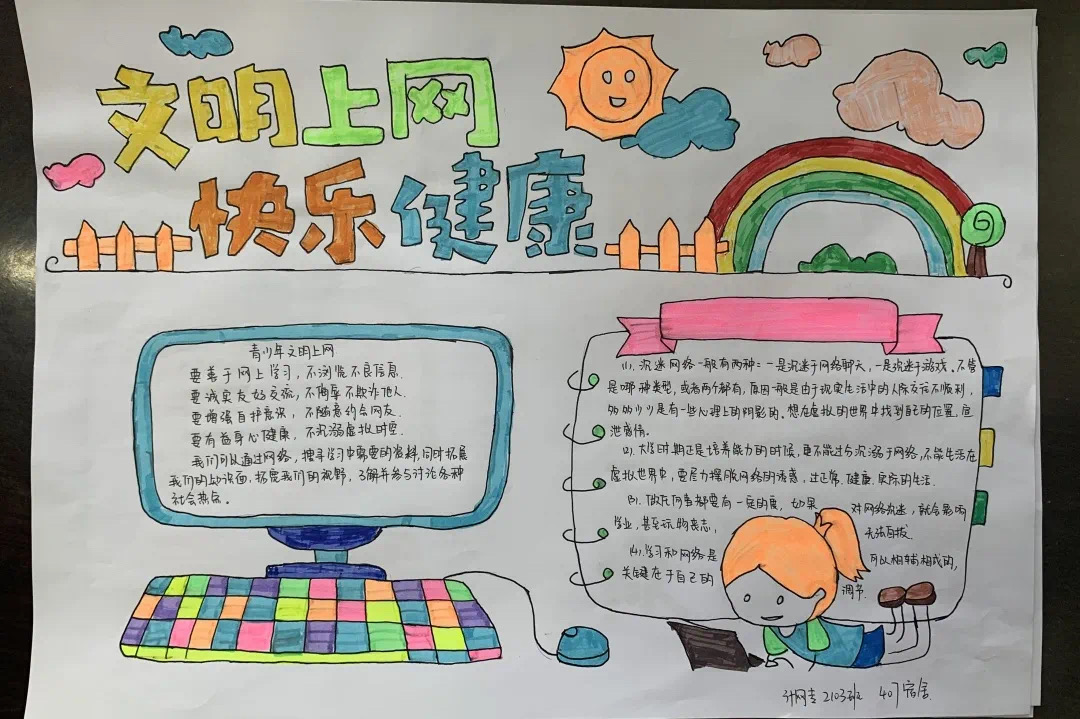 文明上网
快乐健康
青少年文明上网
要善于网上学习，不浏览不良信息.
要诚实友好交流，不侮辱不欺诈他人.
要增强自护意识，不随意约会网友.
要有益身心健康，不沉溺虚拟时空.
我们可以通过网络，搜寻学习中需要的资料，同时拓展
我们的知识面，拓宽我们的视野，了解并参与讨论各种
社会热点。
(1)、沉迷网络一般有两种：一是沉迷于网络聊天，一是沉迷于游戏。不管
是哪种类型，或者两个都有，原因一般是由于现实生活中的人际交流不顺利，
少少是有一些心理上的阴影的、想在虚拟的世界中找到自己的位置、宣
泄感情。
(2)、大学时期正是培养能力的时候，更不能过分沉溺于网络，不能生活在
虚拟世界中，要尽力摆脱网络的诱惑，过正常、健康、实际的生活.
(3)、做任何事都要有一定的度，如果 对网络沉迷，就会影响
学业，甚至玩物丧志， 无法自拔.
(4)、学习和网络是 可以相辅相成的，
关键在于自己的 调节.
计网专2103班 407宿舍.